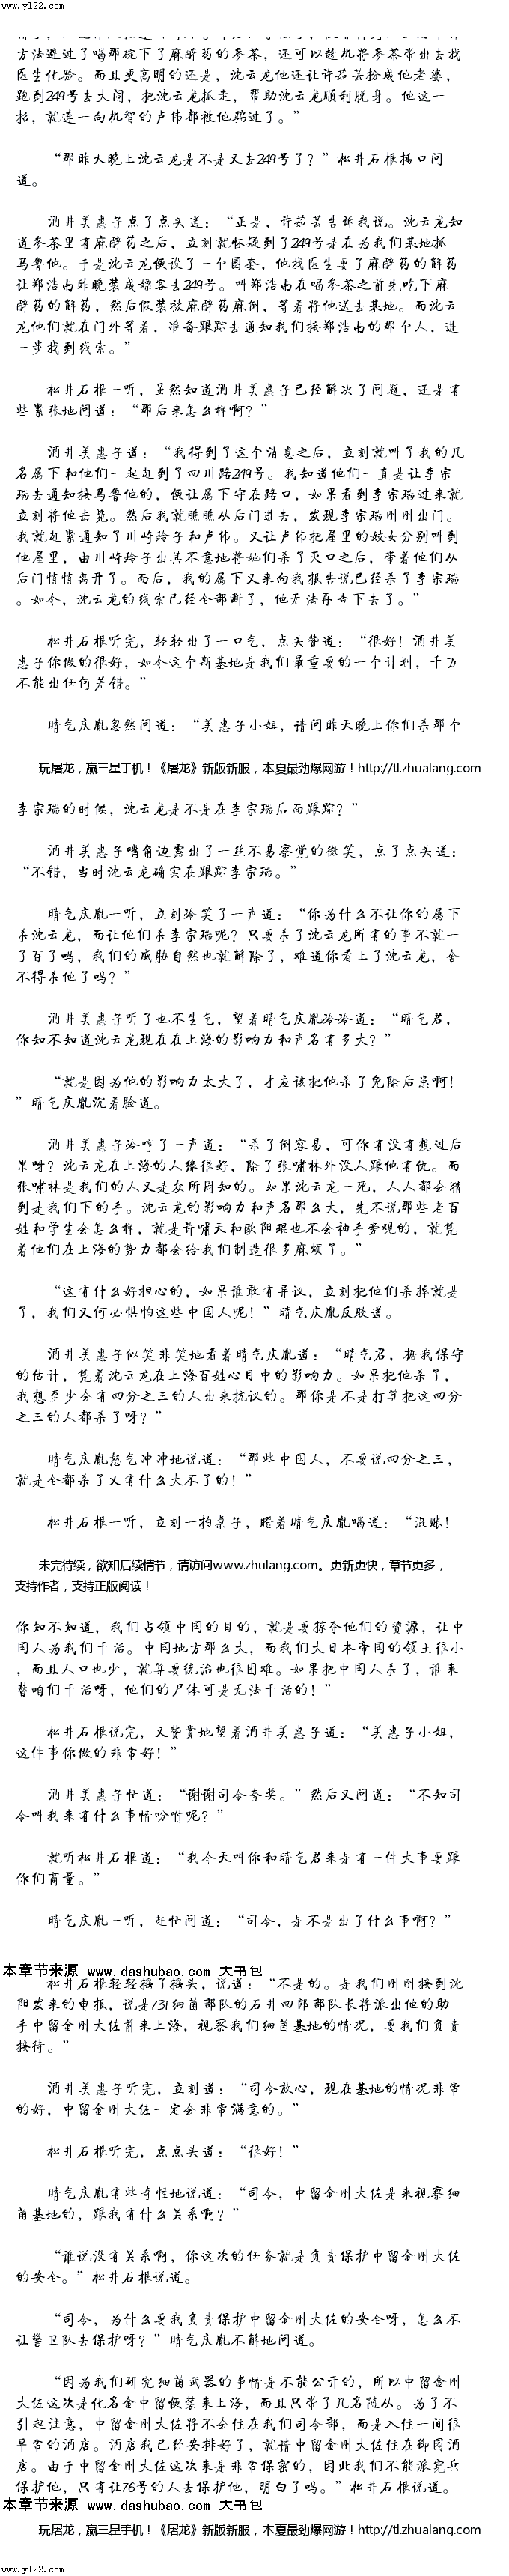 www.yl22.com
方法避过了喝那碗下了麻醉药的参茶，还可以趁机将参茶带出去找
医生化验。而且更高明的还是，沈云龙他还让许茹芸扮成他老婆，
跑到249号去大闹，把沈云龙抓走，帮助沈云龙顺利脱身。他这一
招，就连一向机智的卢伟都被他骗过了。”
“那昨天晚上沈云龙是不是又去249号了？”松井石根插口问
道。
酒井美惠子点了点头道：“正是，许茹芸告诉我说。沈云龙知
道参茶里有麻醉药之后，立刻就怀疑到了249号是在为我们基地抓
马鲁他。于是沈云龙便设了一个圈套，他找医生要了麻醉药的解药
让郑浩南昨晚装成嫖客去249号。叫郑浩南在喝参茶之前先吃下麻
醉药的解药，然后假装被麻醉药麻倒，等着将他送去基地。而沈云
龙他们就在门外等着，准备跟踪去通知我们接郑浩南的那个人，进
一步找到线索。”
松井石根一听，虽然知道酒井美惠子已经解决了问题，还是有
些紧张地问道：“那后来怎么样啊？”
酒井美惠子道：“我得到了这个消息之后，立刻就叫了我的几
名属下和他们一起赶到了四川路249号。我知道他们一直是让李宗
瑞去通知接马鲁他的，便让属下守在路口，如果看到李宗瑞过来就
立刻将他击毙。然后我就瞧瞧从后门进去，发现李宗瑞刚刚出门。
我就赶紧通知了川崎玲子和卢伟。又让卢伟把屋里的妓女分别叫到
他屋里，由川崎玲子出其不意地将她们杀了灭口之后，带着他们从
后门悄悄离开了。而后，我的属下又来向我报告说已经杀了李宗瑞
。如今，沈云龙的线索已经全部断了，他无法再查下去了。”
松井石根听完，轻轻出了一口气，点头赞道：“很好！酒井美
惠子你做的很好，如今这个新基地是我们最重要的一个计划，千万
不能出任何差错。”
晴气庆胤忽然问道：“美惠子小姐，请问昨天晚上你们杀那个
玩屠龙，赢三星手机！《屠龙》新版新服，本夏最劲爆网游！http://tl.zhualang.com
李宗瑞的时候，沈云龙是不是在李宗瑞后面跟踪？”
酒井美惠子嘴角边露出了一丝不易察觉的微笑，点了点头道：
“不错，当时沈云龙确实在跟踪李宗瑞。”
晴气庆胤一听，立刻冷笑了一声道：“你为什么不让你的属下
杀沈云龙，而让他们杀李宗瑞呢？只要杀了沈云龙所有的事不就一
了百了吗，我们的威胁自然也就解除了，难道你看上了沈云龙，舍
不得杀他了吗？”
酒井美惠子听了也不生气，望着晴气庆胤冷冷道：“晴气君，
你知不知道沈云龙现在在上海的影响力和声名有多大？”
“就是因为他的影响力太大了，才应该把他杀了免除后患啊！
”晴气庆胤沉着脸道。
酒井美惠子冷哼了一声道：“杀了倒容易，可你有没有想过后
果呀？沈云龙在上海的人缘很好，除了张啸林外没人跟他有仇。而
张啸林是我们的人又是众所周知的。如果沈云龙一死，人人都会猜
到是我们下的手。沈云龙的影响力和声名那么大，先不说那些老百
姓和学生会怎么样，就是许啸天和欧阳琨也不会袖手旁观的，就凭
着他们在上海的势力都会给我们制造很多麻烦了。”
“这有什么好担心的，如果谁敢有异议，立刻把他们杀掉就是
了，我们又何必惧怕这些中国人呢！”晴气庆胤反驳道。
酒井美惠子似笑非笑地看着晴气庆胤道：“晴气君，据我保守
的估计，凭着沈云龙在上海百姓心目中的影响力。如果把他杀了，
我想至少会有四分之三的人出来抗议的。那你是不是打算把这四分
之三的人都杀了呀？”
晴气庆胤怒气冲冲地说道：“那些中国人，不要说四分之三，
就是全都杀了又有什么大不了的！”
松井石根一听，立刻一拍桌子，瞪着晴气庆胤喝道：“混账！
未完待续，欲知后续情节，请访问www.zhulang.com。更新更快，章节更多，
支持作者，支持正版阅读！
你知不知道，我们占领中国的目的，就是要掠夺他们的资源，让中
国人为我们干活。中国地方那么大，而我们大日本帝国的领土很小
，而且人口也少，就算要统治也很困难。如果把中国人杀了，谁来
替咱们干活呀，他们的尸体可是无法干活的！”
松井石根说完，又赞赏地望着酒井美惠子道：“美惠子小姐，
这件事你做的非常好！”
酒井美惠子忙道：“谢谢司令夸奖。”然后又问道：“不知司
令叫我来有什么事情吩咐呢？”
就听松井石根道：“我今天叫你和晴气君来是有一件大事要跟
你们商量。”
晴气庆胤一听，赶忙问道：“司令，是不是出了什么事啊？”
本章节来源 www.dashubao.com 大书包
松井石根轻轻摇了摇头，说道：“不是的。是我们刚刚接到沈
阳发来的电报，说是731细菌部队的石井四郎部队长将派出他的助
手中留金刚大佐前来上海，视察我们细菌基地的情况，要我们负责
接待。”
酒井美惠子听完，立刻道：“司令放心，现在基地的情况非常
的好，中留金刚大佐一定会非常满意的。”
松井石根听完，点点头道：“很好！”
晴气庆胤有些奇怪地说道：“司令，中留金刚大佐是来视察细
菌基地的，跟我有什么关系啊？”
“谁说没有关系啊，你这次的任务就是负责保护中留金刚大佐
的安全。”松井石根说道。
“司令，为什么要我负责保护中留金刚大佐的安全呀，怎么不
让警卫队去保护呀？”晴气庆胤不解地问道。
“因为我们研究细菌武器的事情是不能公开的，所以中留金刚
大佐这次是化名金中留便装来上海，而且只带了几名随从。为了不
引起注意，中留金刚大佐将不会住在我们司令部，而是入住一间很
平常的酒店。酒店我已经安排好了，就请中留金刚大佐住在御园酒
店。由于中留金刚大佐这次来是非常保密的，因此我们不能派宪兵
保护他，只有让76号的人去保护他，明白了吗。”松井石根说道。
本章节来源 www.dashubao.com 大书包
玩屠龙，赢三星手机！《屠龙》新版新服，本夏最劲爆网游！http://tl.zhualang.com
www.yl22.com